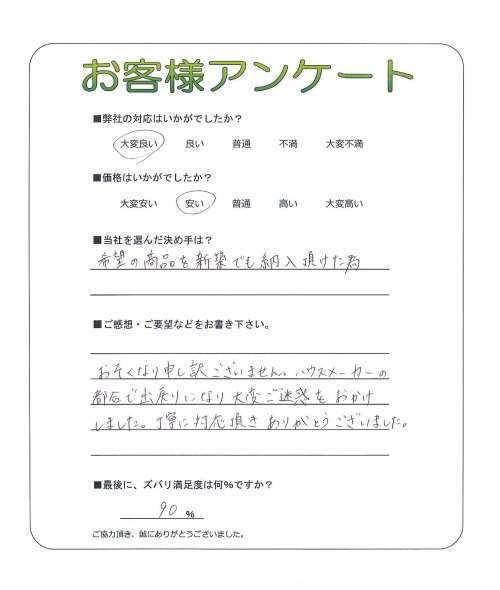 お客様アンケート
■弊社の対応はいかがでしたか？
大変良い 良い 普通 不満 大変不満
■価格はいかがでしたか？
大変安い 安い 普通 高い 大変高い
■当社を選んだ決め手は？
希望の商品を新築でも納入頂けた為
■ご感想・ご要望などをお書き下さい。
おそくなり申し訳ございません。ハウスメーカーの
都合で出戻りになり大変ご迷惑をおかけ
しました。丁寧に対応頂きありがとうございました。
■最後に、ズバリ満足度は何%ですか？
90 %
ご協力頂き、誠にありがとうございました。